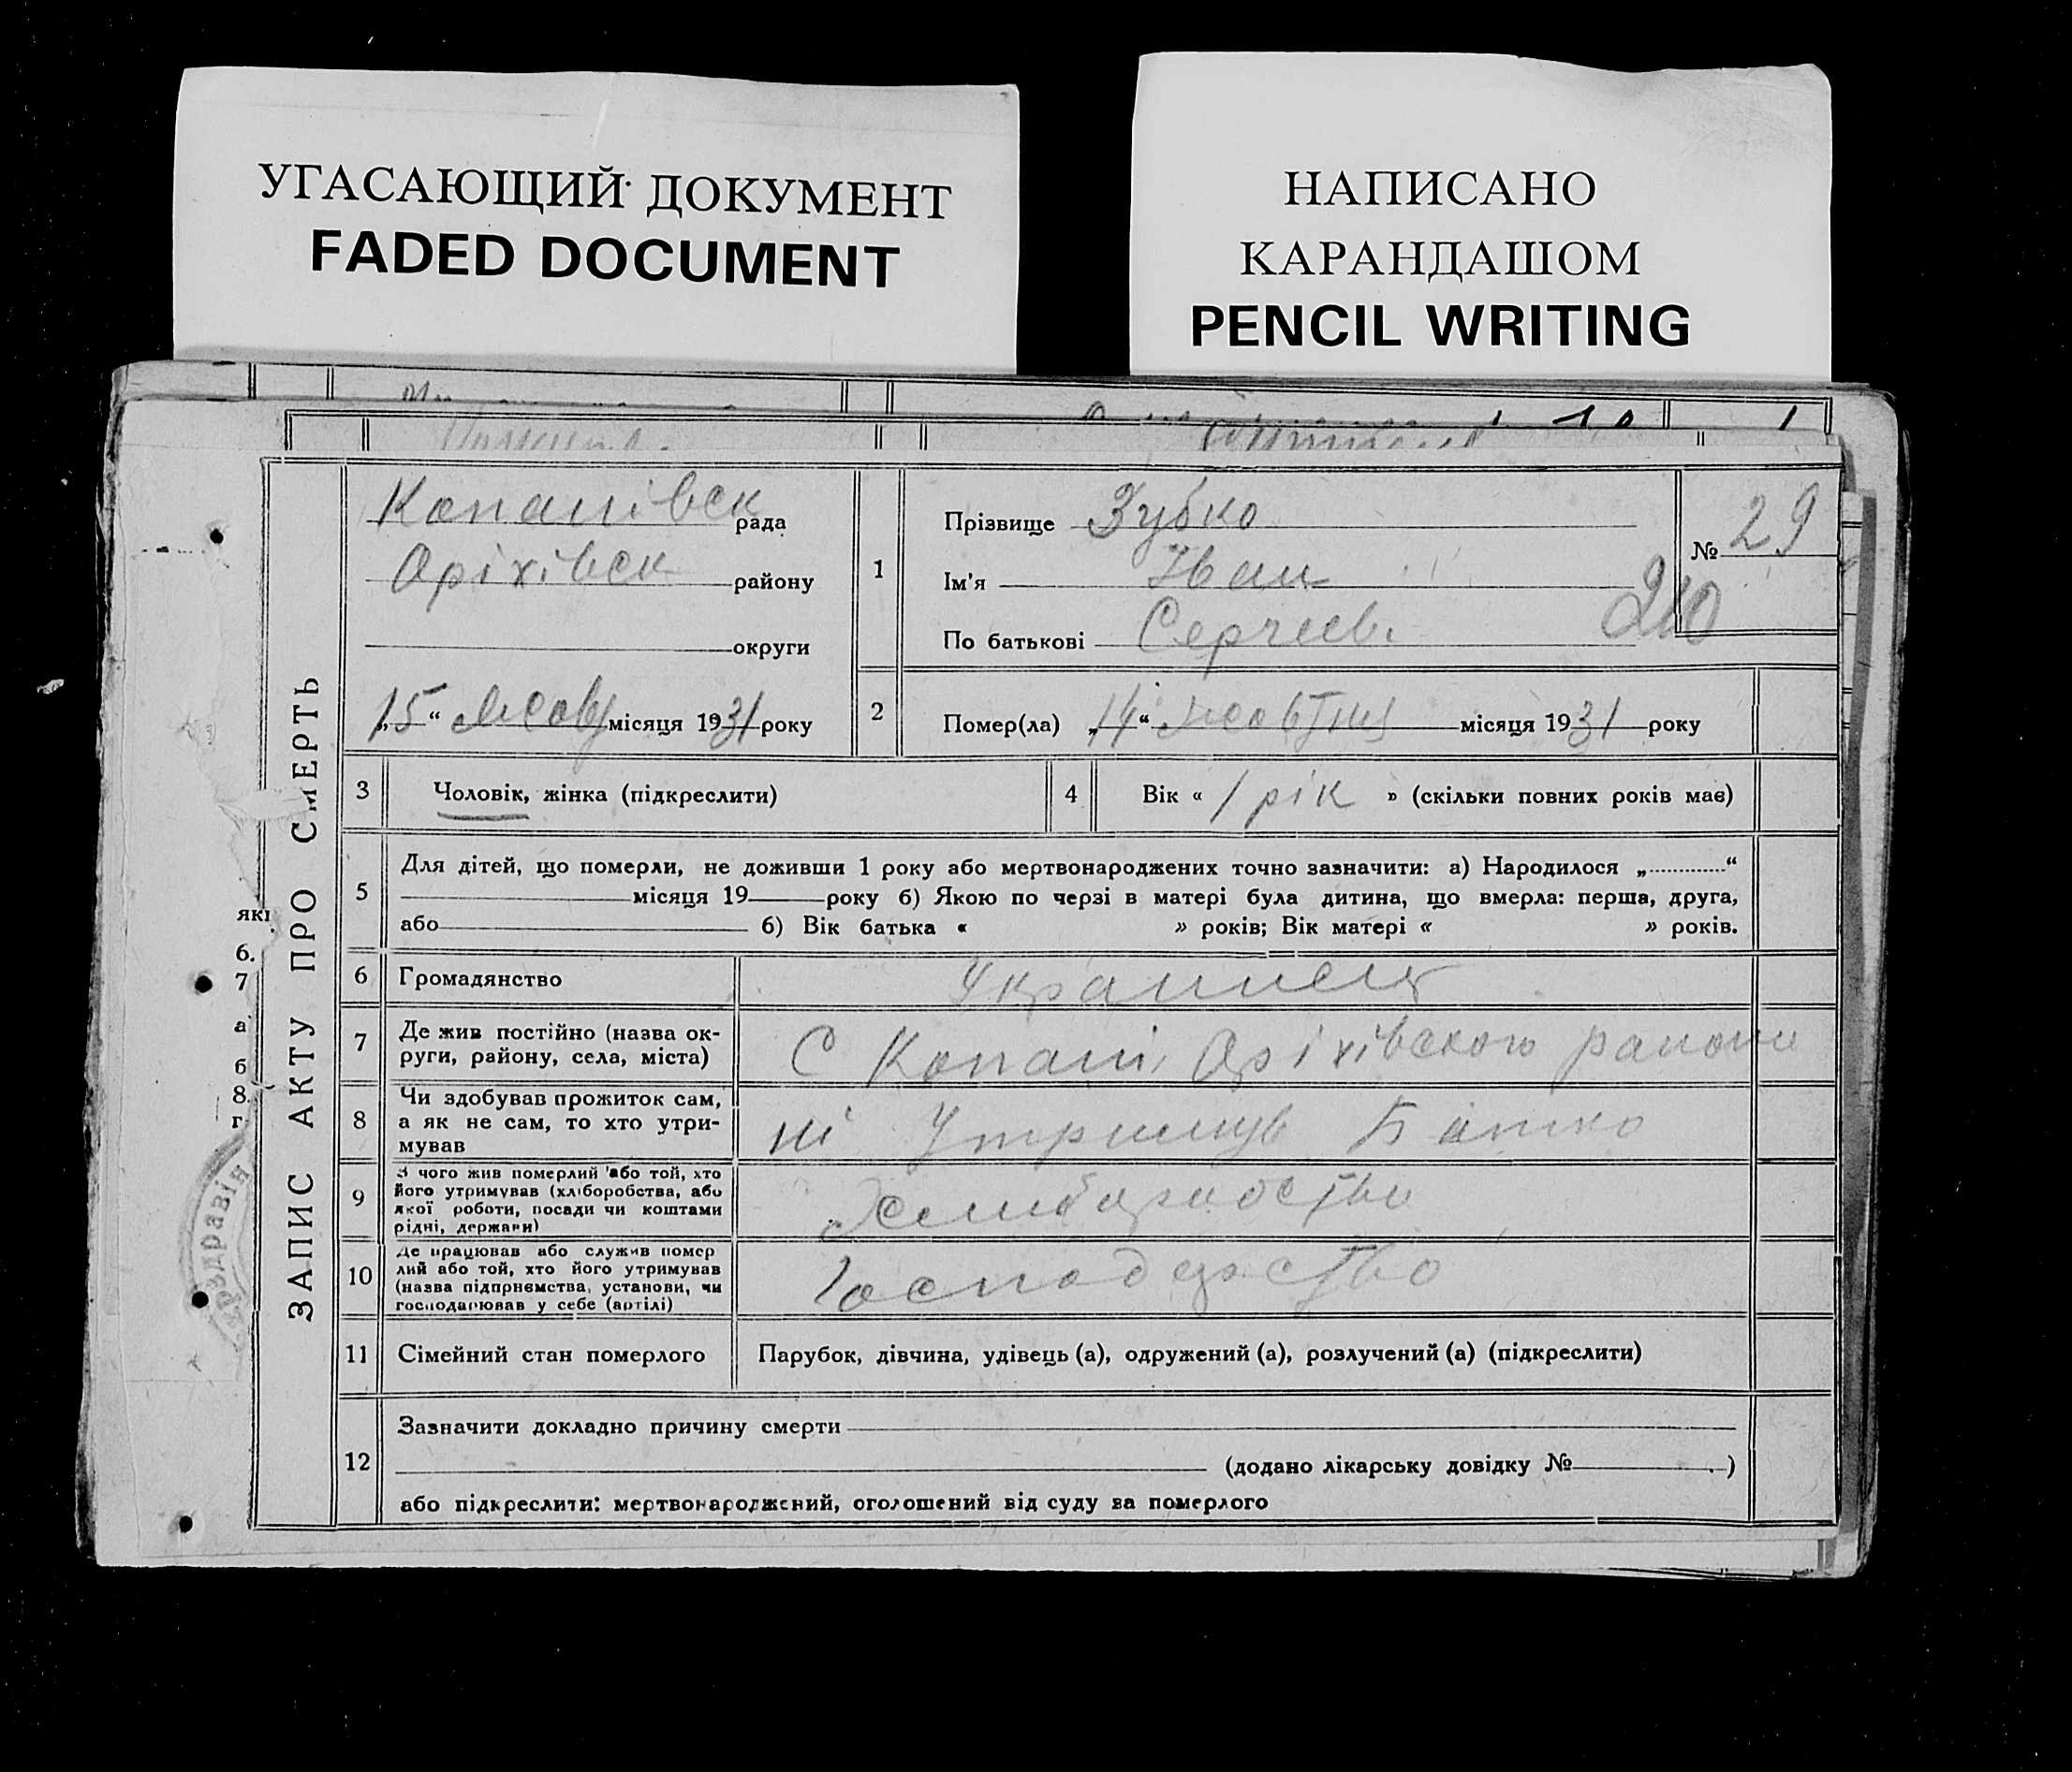 УГАСАЮЩИЙ ДОКУМЕНТ
FADED DOCUMENT
НАПИСАНО
КАРАНДАШОМ
PENCIL WRITING
ЗАПИС АКТУ ПРО СМЕРТЬ
Копанівск рада
Оріхівск району
округи
„15“ Жовт місяця 1931 року
1
Прізвище Зубко
Ім'я Іван
По батькові Сергієв.
№ 29
240
2
Помер(ла) „14“ жовтня місяця 1931 року
3 Чоловік, жінка (підкреслити)
4 Вік « 1 рік » (скільки повних років має)
5
Для дітей, що померли, не доживши 1 року або мертвонароджених точно зазначити: а) Народилося „............“
місяця 19 року б) Якою по черзі в матері була дитина, що вмерла: перша, друга,
або б) Вік батька « » років; Вік матері « » років.
6 Громадянство Украинець
7 Де жив постійно (назва ок-
руги, району, села, міста)
С Копані Оріхівского району
8 Чи здобував прожиток сам,
а як не сам, то хто утри-
мував
ні Утримув Батько
9 З чого жив померлий або той, хто
його утримував (хліборобства, або
якої роботи, посади чи коштами
рідні, держави)
10 Де працював або служив помер
лий або той, хто його утримував
(назва підприємства, установи, чи
господарював у себе (артілі)
11 Сімейний стан померлого Парубок, дівчина, удівець (а), одружений (а), розлучений (а) (підкреслити)
12 Зазначити докладно причину смерти
(додано лікарську довідку № )
або підкреслити: мертвонароджений, оголошений від суду за померлого
які
6.
7
а
б
8.
г